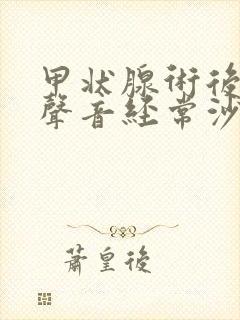 甲狀腺術後
聲音經常沙
蕭皇後